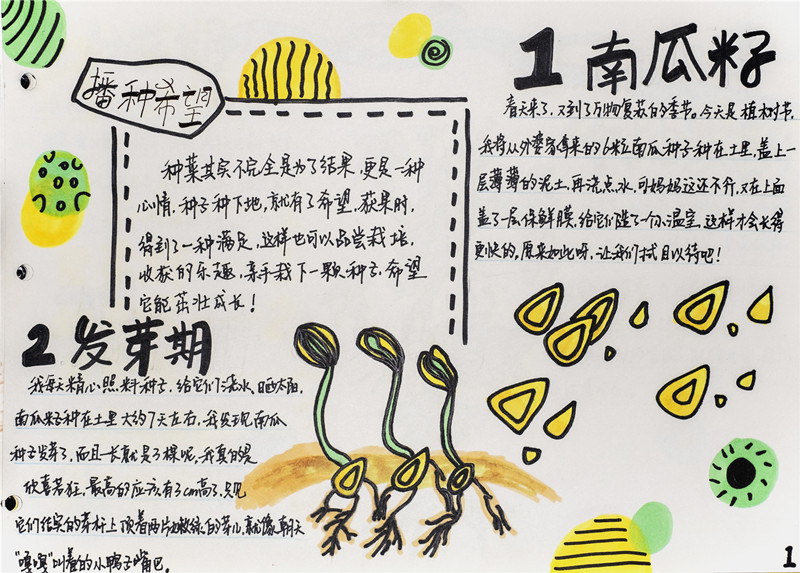 播种希望
种菜其实不完全是为了结果，更是一种
心情，种子种下地，就有了希望，获果时，
得到了一种满足，这样也可以品尝栽培，
收获的乐趣，亲手栽下一颗种子，希望
它能茁壮成长！
1 南瓜籽
春天来了，又到了万物复苏的季节。今天是植树节，
我将从外婆家拿来的6粒南瓜种子种在土里，盖上一
层薄薄的泥土，再浇点水，可妈妈说这还不行，又在上面
盖了一层保鲜膜，给它们造了一个小温室，这样才会长得
更快的，原来如此呀，让我们拭目以待吧！
2 发芽期
我每天精心照料种子，给它们浇水、晒太阳，
南瓜籽种在土里大约7天左右，我发现南瓜
种子发芽了，而且一长就是3棵呢，我真的是
欣喜若狂，最高的应该有7cm高了，只见
它们结实的芽杆上顶着两片嫩绿的芽儿，就像朝天
“嘎嘎”叫着的小鸭子嘴巴。
1